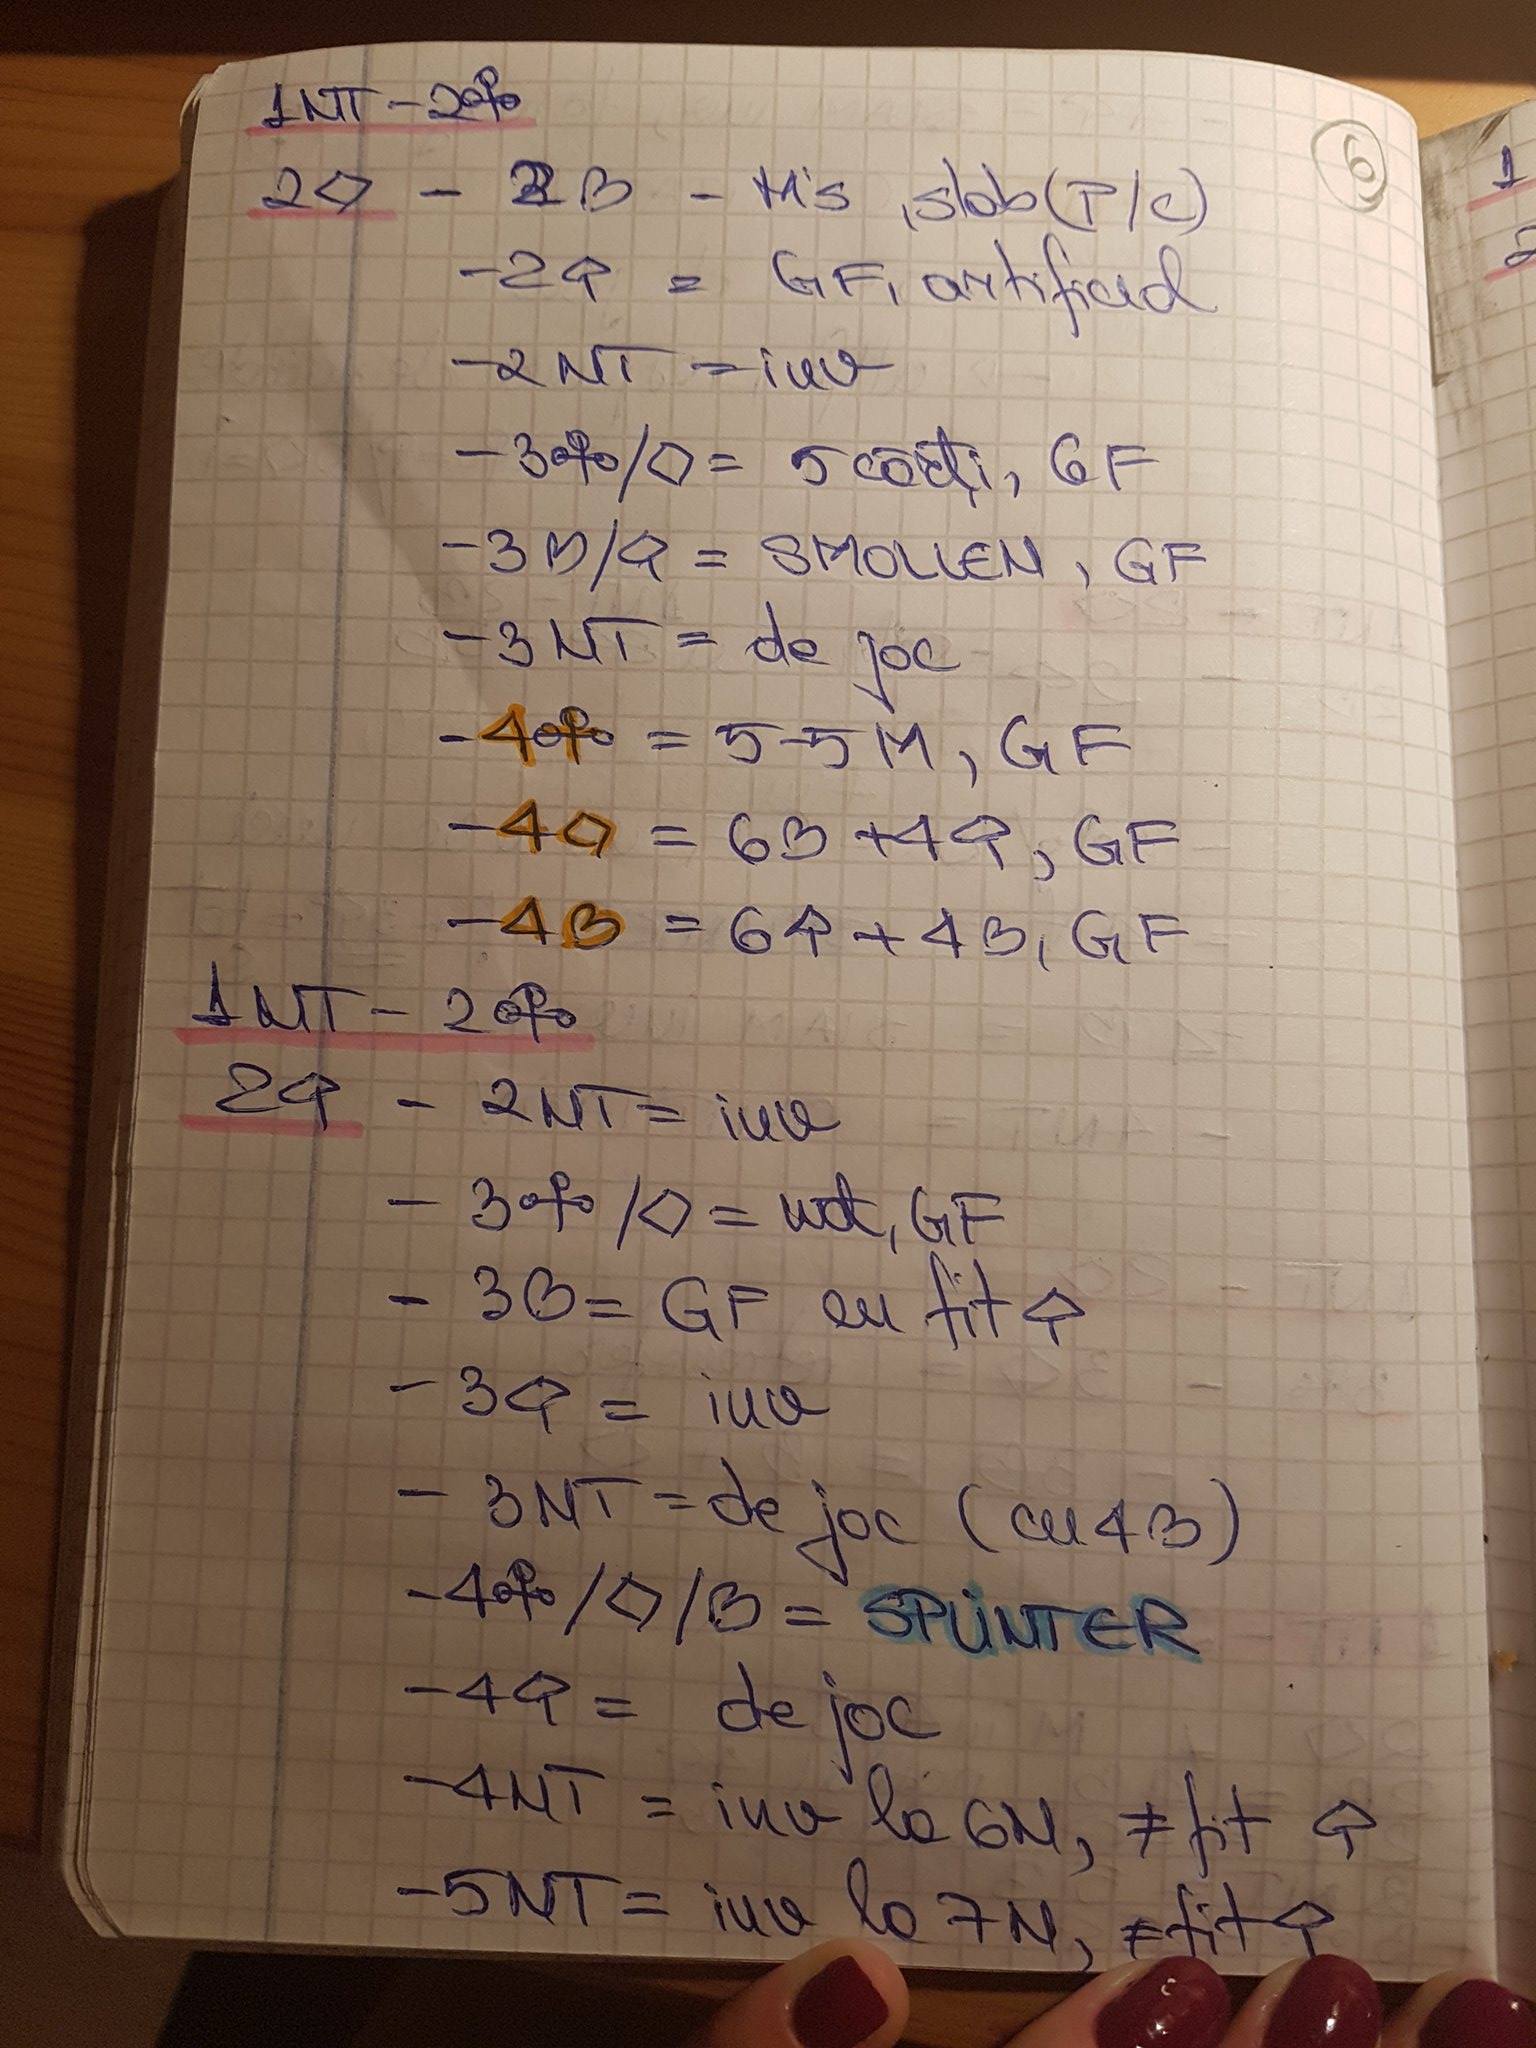 1NT - 2♣
6
2♢ - 2♡ - M's, slab (P/C)
- 2♠ = GF, artificial
- 2NT = inv
- 3♣/♢ = 5 cărți, GF
- 3♡/♠ = SMOLLEN, GF
- 3NT = de joc
- 4♣ = 5-5M, GF
- 4♢ = 6♡ + 4♠, GF
- 4♡ = 6♠ + 4♡, GF
1NT - 2♣
2♠ - 2NT = inv
- 3♣/♢ = nat, GF
- 3♡ = GF cu fit ♠
- 3♠ = inv
- 3NT = de joc (cu 4♡)
- 4♣/♢/♡ = SPLINTER
- 4♠ = de joc
- 4NT = inv la 6N, ≠ fit ♠
- 5NT = inv la 7N, ≠ fit ♠
1
2